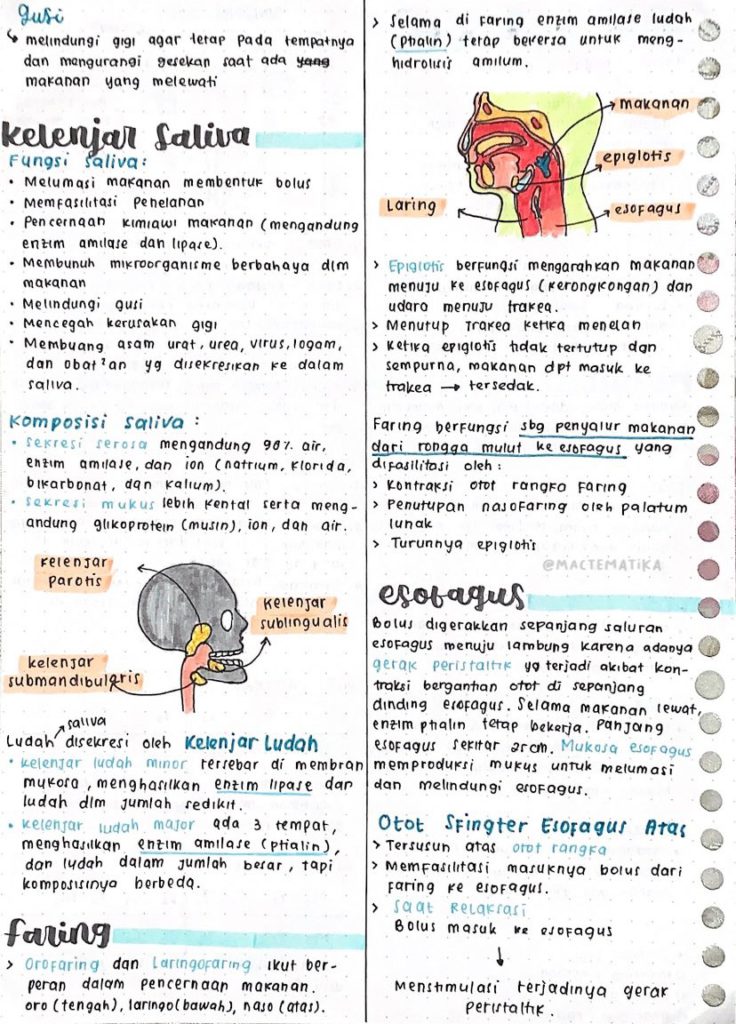 gusi
↳ melindungi gigi agar tetap pada tempatnya
dan mengurangi gesekan saat ada yang
makanan yang melewati
Kelenjar Saliva
Fungsi saliva:
• Melumasi makanan membentuk bolus
• Memfasilitasi Penelanan
• Pencernaan kimiawi makanan (mengandung
enzim amilase dan lipase).
• Membunuh mikroorganisme berbahaya dlm
makanan
• Melindungi gusi
• Mencegah kerusakan gigi
• Membuang asam urat, urea, virus, logam,
dan obat²an yg disekresikan ke dalam
saliva.
Komposisi saliva :
• sekresi serosa mengandung 98% air,
enzim amilase, dan ion (natrium, klorida,
bikarbonat, dan kalium).
• sekresi mukus lebih kental serta meng-
andung glikoprotein (musin), ion, dan air.
kelenjar
parotis
kelenjar
sublingualis
kelenjar
submandibularis
saliva
Ludah disekresi oleh Kelenjar Ludah
• kelenjar ludah minor tersebar di membran
mukosa, menghasilkan enzim lipase dan
ludah dlm jumlah sedikit.
• kelenjar ludah major ada 3 tempat,
menghasilkan enzim amilase (ptialin),
dan ludah dalam jumlah besar, tapi
komposisinya berbeda.
faring
> Orofaring dan Laringofaring ikut ber-
peran dalam pencernaan makanan.
oro (tengah), laringo (bawah), naso (atas).
> Selama di faring enzim amilase ludah
(ptialin) tetap bekersa untuk meng-
hidrolisis amilum.
makanan
epiglotis
Laring
esofagus
> Epiglotis berfungsi mengarahkan makanan
menuju ke esofagus (kerongkongan) dan
udara menuju trakea.
> Menutup trakea ketika menelan
> Ketika epiglotis tidak tertutup dgn
sempurna, makanan dpt masuk ke
trakea → tersedak.
Faring berfungsi sbg penyalur makanan
dari rongga mulut ke esofagus yang
difasilitasi oleh :
> Kontraksi otot rangka faring
> Penutupan nasofaring oleh palatum
lunak
> Turunnya epiglotis
@MACTEMATIKA
esofagus
Bolus digerakkan sepanjang saluran
esofagus menuju lambung karena adanya
gerak peristaltik yg terjadi akibat kon-
traksi bergantian otot di sepanjang
dinding esofagus. Selama makanan lewat,
enzim ptialin tetap bekerja. Panjang
esofagus sekitar 25cm. Mukosa esofagus
memproduksi mukus untuk melumasi
dan melindungi esofagus.
Otot Sfingter Esofagus Atas
> Tersusun atas otot rangka
> Memfasilitasi masuknya bolus dari
faring ke esofagus.
> Saat Relaksasi
Bolus masuk ke esofagus
↓
Menstimulasi terjadinya gerak
peristaltik.